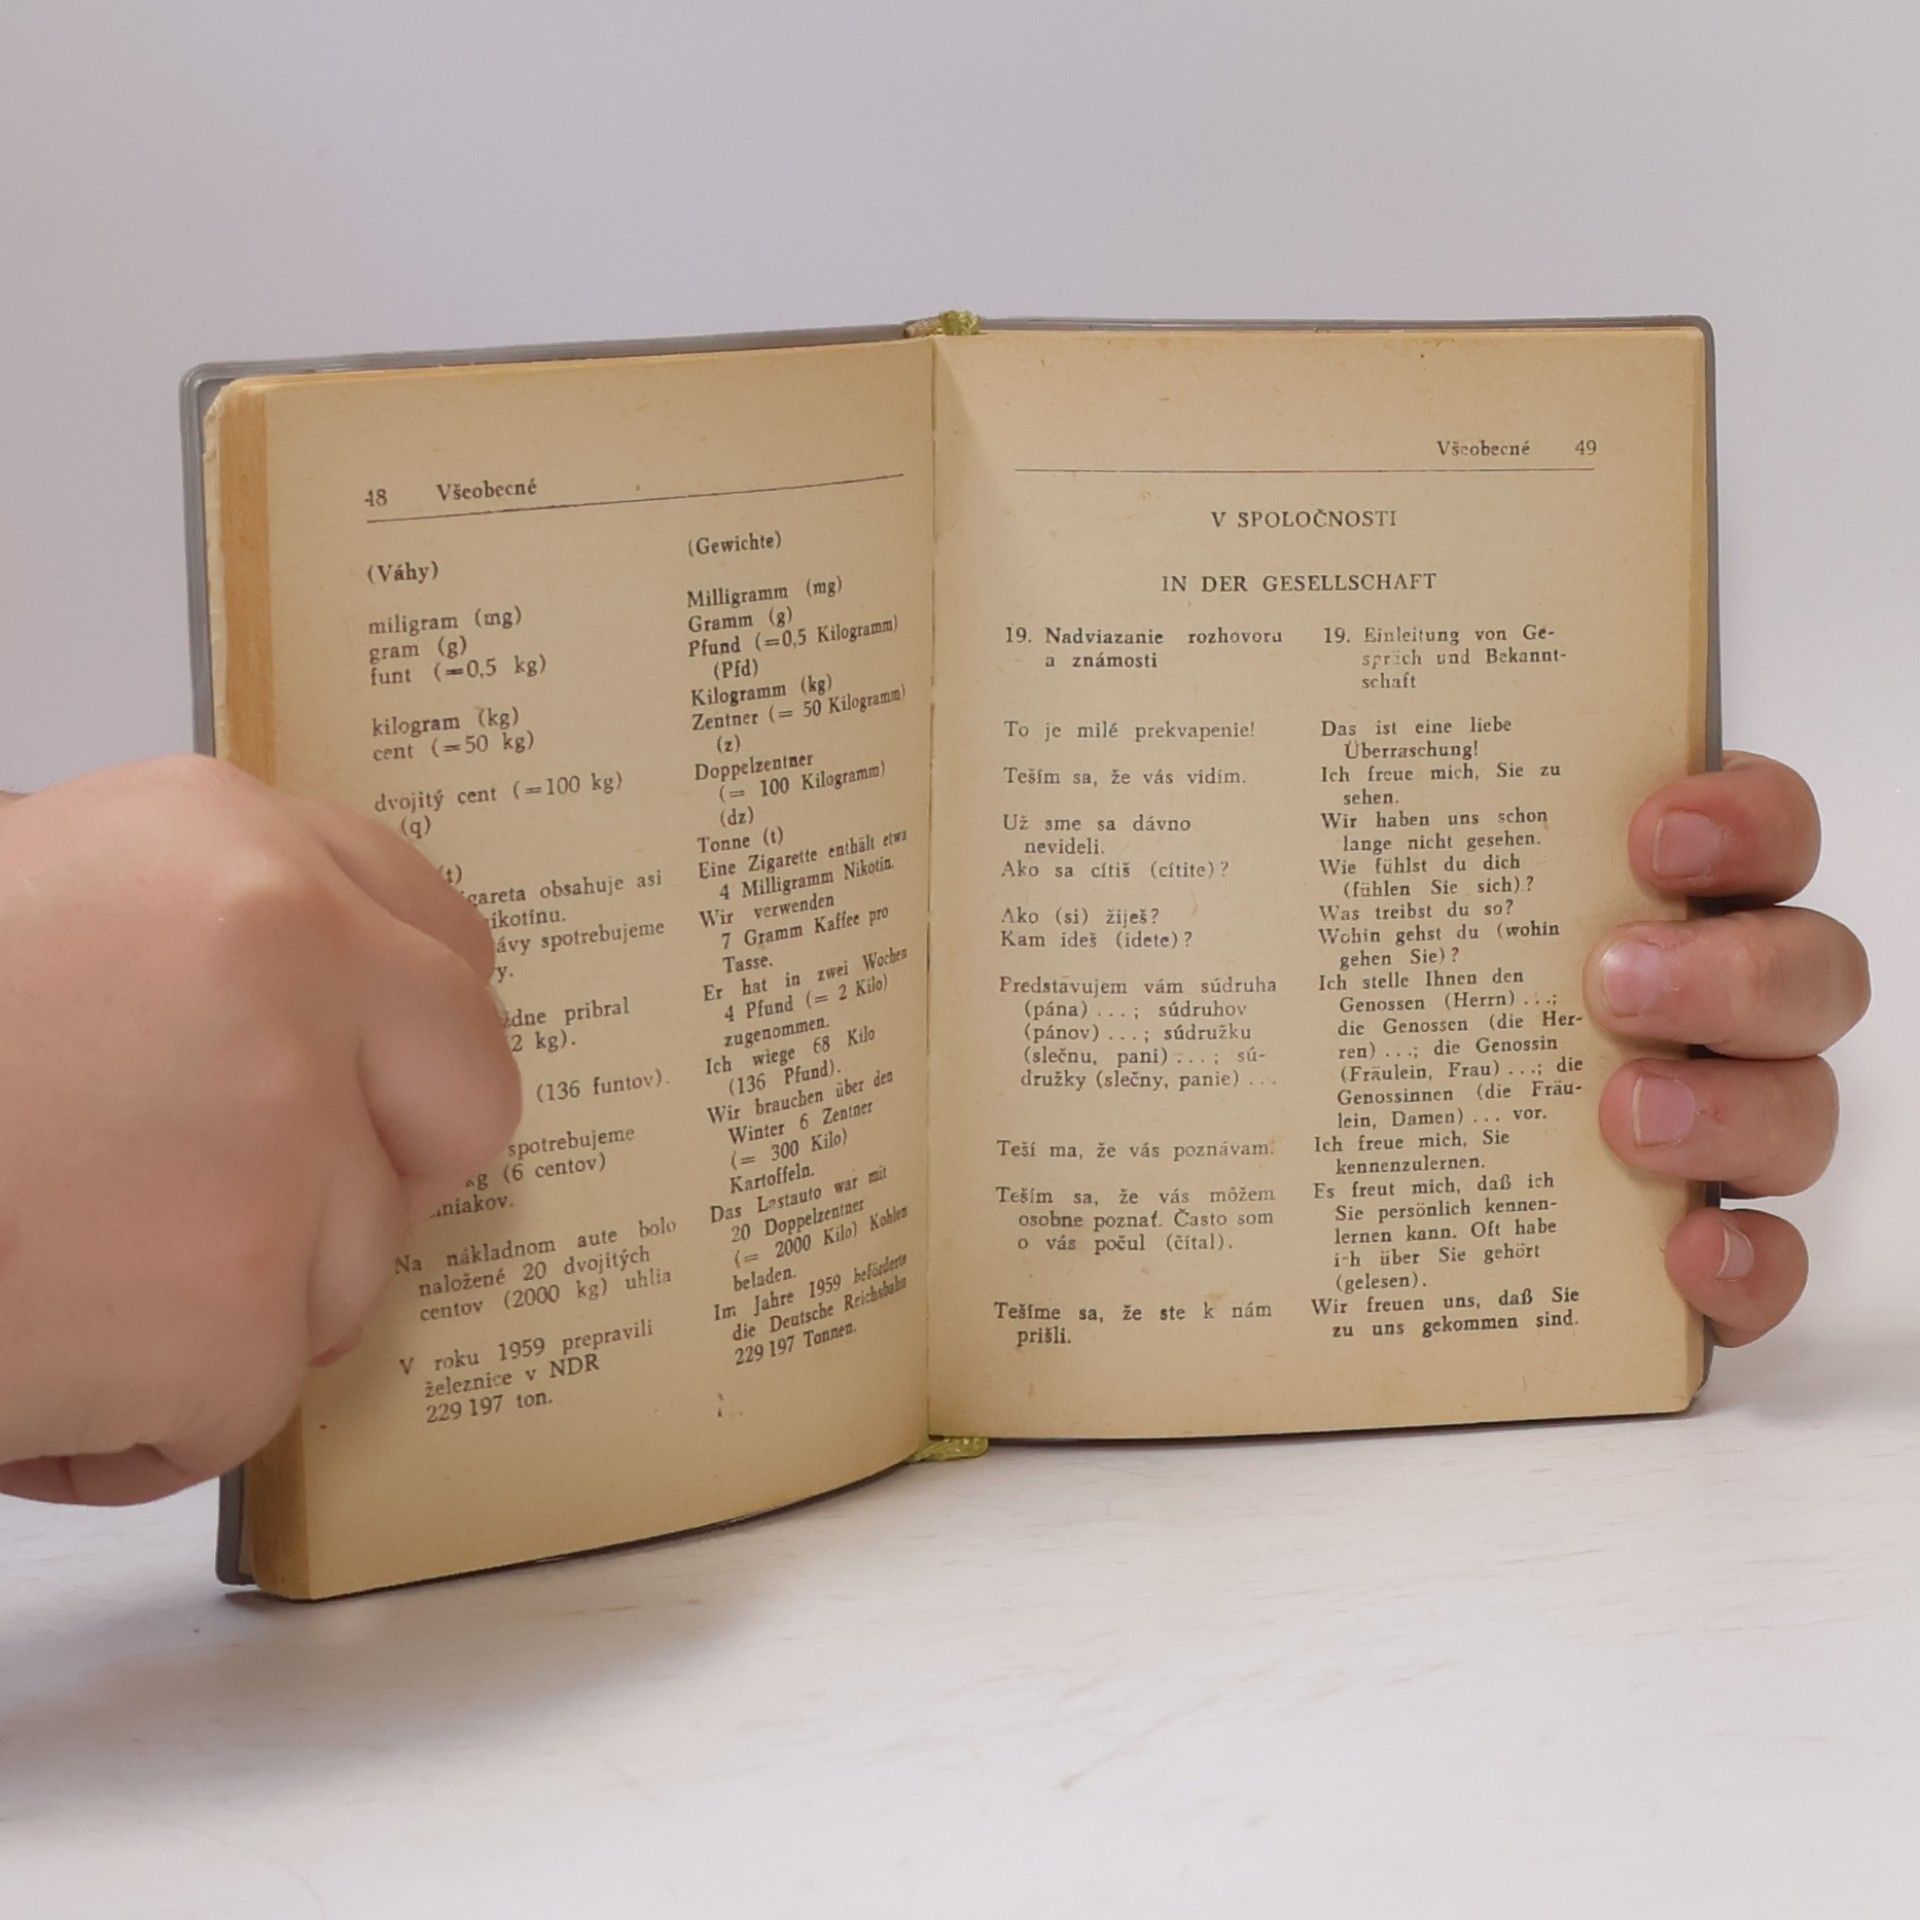 48 Všeobecné
(Váhy)
miligram (mg)
gram (g)
funt (=0,5 kg)
kilogram (kg)
cent (=50 kg)
dvojitý cent (=100 kg)
(q)
(t)
obsahuje asi
spotrebujeme
pribral
2 kg).
(136 funtov).
spotrebujeme
kg (6 centov)
Na nákladnom aute bolo
naložené 20 dvojitých
centov (2000 kg) uhlia
V roku 1959 prepravili
železnice v NDR
229 197 ton.
(Gewichte)
Milligramm (mg)
Gramm (g)
Pfund (=0,5 Kilogramm)
(Pfd)
Kilogramm (kg)
Zentner (= 50 Kilogramm)
(z)
Doppelzentner
(= 100 Kilogramm)
(dz)
Tonne (t)
Eine Zigarette enthält etwa
4 Milligramm Nikotin.
Wir verwenden
7 Gramm Kaffee pro
Tasse.
Er hat in zwei Wochen
4 Pfund (= 2 Kilo)
zugenommen.
Ich wiege 68 Kilo
(136 Pfund).
Wir brauchen über den
Winter 6 Zentner
(= 300 Kilo)
Kartoffeln.
Das Lastauto war mit
20 Doppelzentner
(= 2000 Kilo) Kohlen
beladen.
Im Jahre 1959 beförderte
die Deutsche Reichsbahn
229 197 Tonnen.
Všeobecné 49
V SPOLOČNOSTI
IN DER GESELLSCHAFT
19. Nadviazanie rozhovoru
a známosti
To je milé prekvapenie!
Teším sa, že vás vidím.
Už sme sa dávno
nevideli.
Ako sa cítiš (cítite)?
Ako (si) žiješ?
Kam ideš (idete)?
Predstavujem vám súdruha
(pána) ...; súdruhov
(pánov) ...; súdružku
(slečnu, pani) ...; sú-
družky (slečny, panie) ...
Teší ma, že vás poznávam.
Teším sa, že vás môžem
osobne poznať. Často som
o vás počul (čítal).
Tešíme sa, že ste k nám
prišli.
19. Einleitung von Ge-
spräch und Bekannt-
schaft
Das ist eine liebe
Überraschung!
Ich freue mich, Sie zu
sehen.
Wir haben uns schon
lange nicht gesehen.
Wie fühlst du dich
(fühlen Sie sich)?
Was treibst du so?
Wohin gehst du (wohin
gehen Sie)?
Ich stelle Ihnen den
Genossen (Herrn) ...;
die Genossen (die Her-
ren) ...; die Genossin
(Fräulein, Frau) ...; die
Genossinnen (die Fräu-
lein, Damen) ... vor.
Ich freue mich, Sie
kennenzulernen.
Es freut mich, daß ich
Sie persönlich kennen-
lernen kann. Oft habe
ich über Sie gehört
(gelesen).
Wir freuen uns, daß Sie
zu uns gekommen sind.